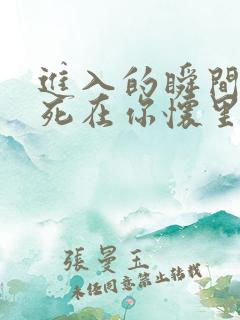 進入的瞬間
死在你懷里
張曼玉
未經同意禁止转载